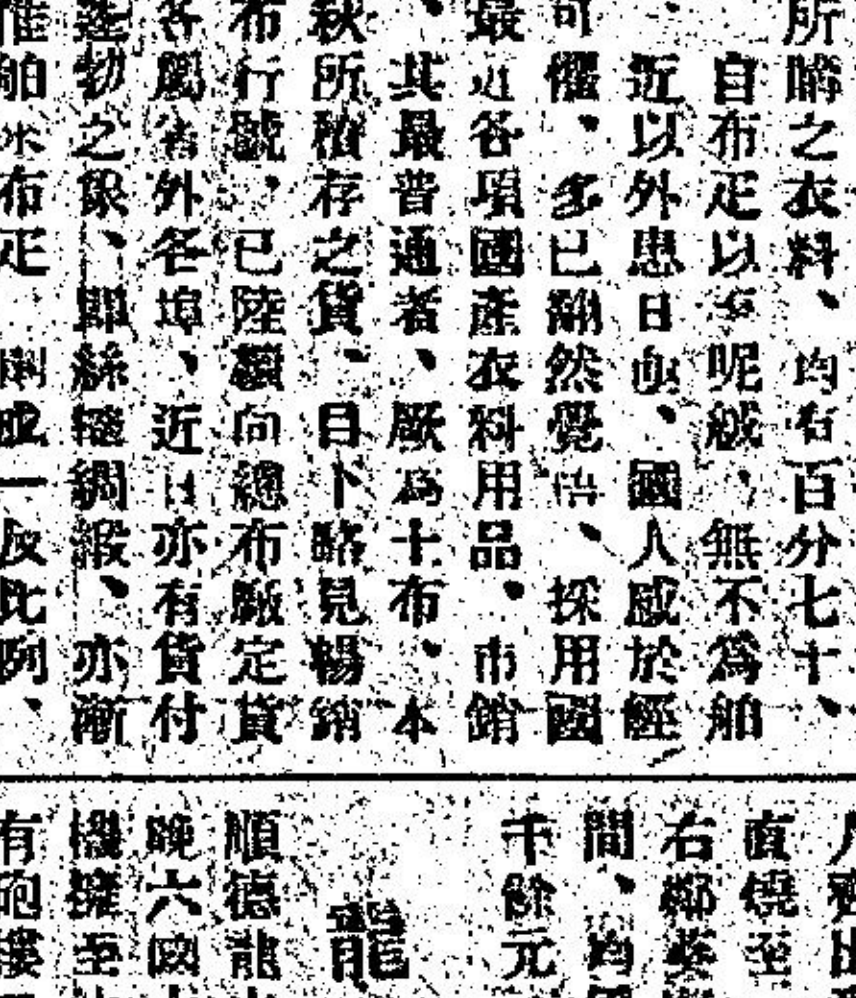 所購之衣料、均有百分七十、
自布疋以至呢絨、無不爲舶
近以外患日亟、國人感於經
可懼、多已翻然覺悟、採用國
最近各項國產衣料用品、市銷
、其最普通者、厥爲土布、本
秋所積存之貨、目下略見暢銷
布行號、已陸續向總布廠定貨
各屬省外各埠、近日亦有貨付
蓬勃之象、即絲織綢緞、亦漸
舶來布疋 成一反比例、
直燒至
右鄰
間、均
千餘元
龍
順德龍
晚六
機擁至
有砲樓